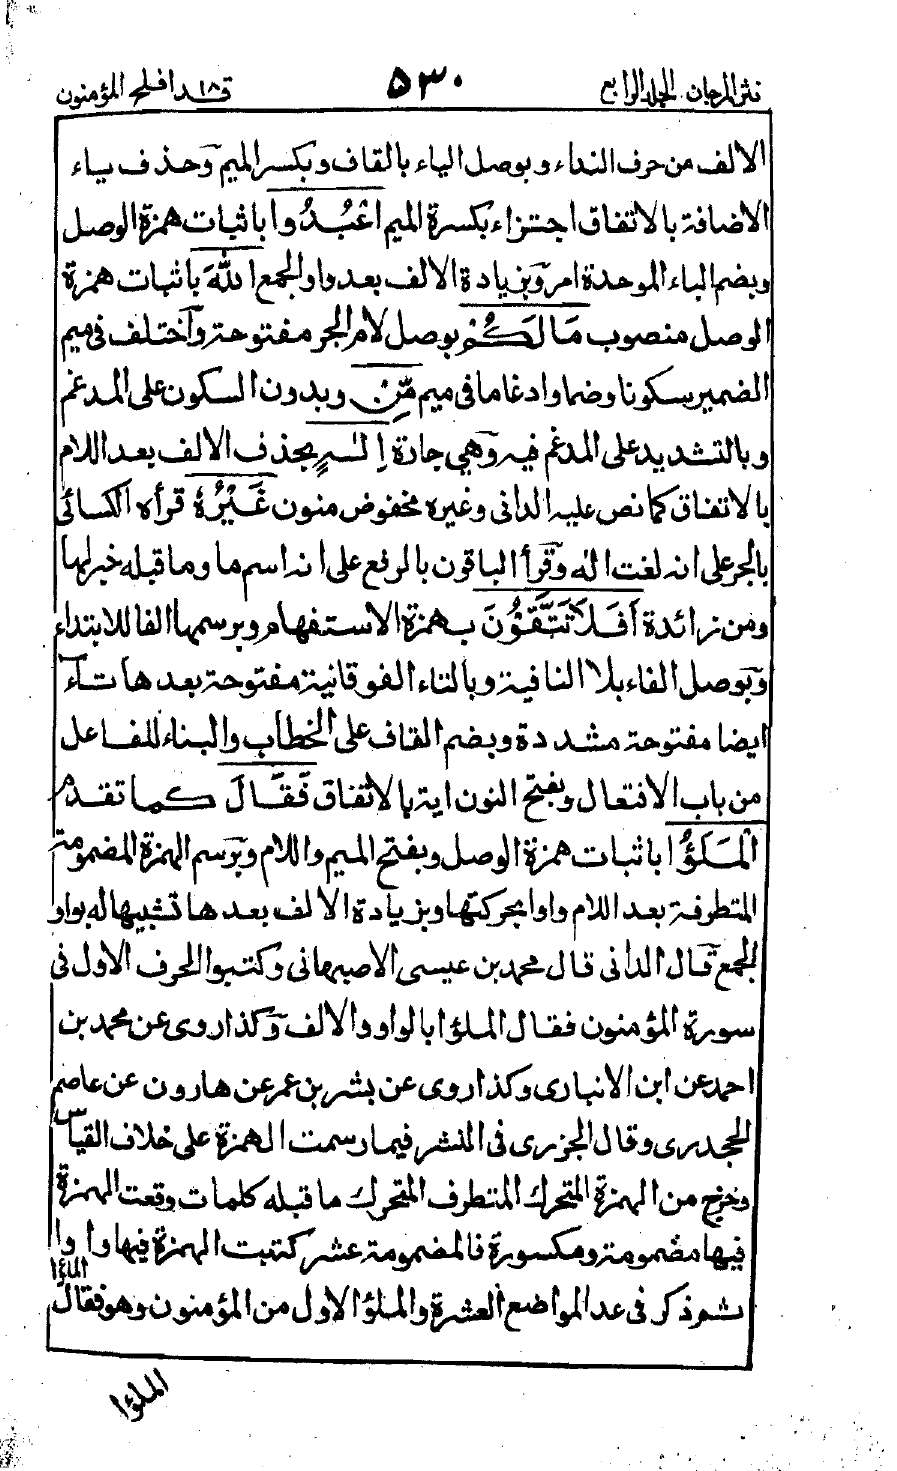 نثر المرجان الجلد الرابع
٥٣٠
قد افلح ١٨ المؤمنون
الالف من حرف النداء وبوصل الياء بالقاف وبكسر الميم وحذف ياء
الاضافة بالاتفاق اجتزاء بكسرة الميم اعْبُدُوا باثبات همزة الوصل
وبضم الباء الموحدة امر وبزيادة الالف بعد واو الجمع اللّٰهَ باثبات همزة
الوصل منصوب مَا لَكُمْ بوصل لام الجر مفتوحة واختلف في ميم
الضمير سكونا وضما وادغاما في ميم مِّنْ وبدون السكون على المدغم
وبالتشديد على المدغم فيه وهي جارة اِلٰهٍ بحذف الالف بعد اللام
بالاتفاق كما نص عليه الداني وغيره مخفوض منون غَيْرُهٗ قرأه الكسائي
بالجر على انه لغت اله وقرأ الباقون بالرفع على انه اسم ما وما قبله خبر لها
ومن زائدة اَفَلَا تَتَّقُوْنَ بهمزة الاستفهام وبرسمها الفا للابتداء
وبوصل الفاء بلا النافية وبالتاء الفوقانية مفتوحة بعدها تاء
ايضا مفتوحة مشددة وبضم القاف على الخطاب والبناء للفاعل
من باب الافتعال وبفتح النون اية بالاتفاق فَقَالَ كما تقدم
الْمَلَؤُا باثبات همزة الوصل وبفتح الميم واللام وبرسم الهمزة المضمومة
المتطرفة بعد اللام واوا بحركتها وبزيادة الالف بعدها تشبيها له بواو
الجمع قال الداني قال محمد بن عيسى الاصبهاني وكتبوا الحرف الاول في
سورة المؤمنون فقال الملؤا بالواو والالف وكذا روى عن محمد بن
احمد عن ابن الانباري وكذا روى عن بشر بن عمر عن هارون عن عاصم
الجحدري وقال الجزري في النشر فيما رسمت الهمزة على خلاف القياس
وخرج من الهمزة المتحرك المتطرف المتحرك ما قبله كلمات وقعت الهمزة
فيها مضمومة ومكسورة فالمضمومة عشر كتبت الهمزة فيها واوا وا
ثم ذكر في عد المواضع العشرة والملؤا الاول من المؤمنون وهو فقال الملؤا
الملؤا